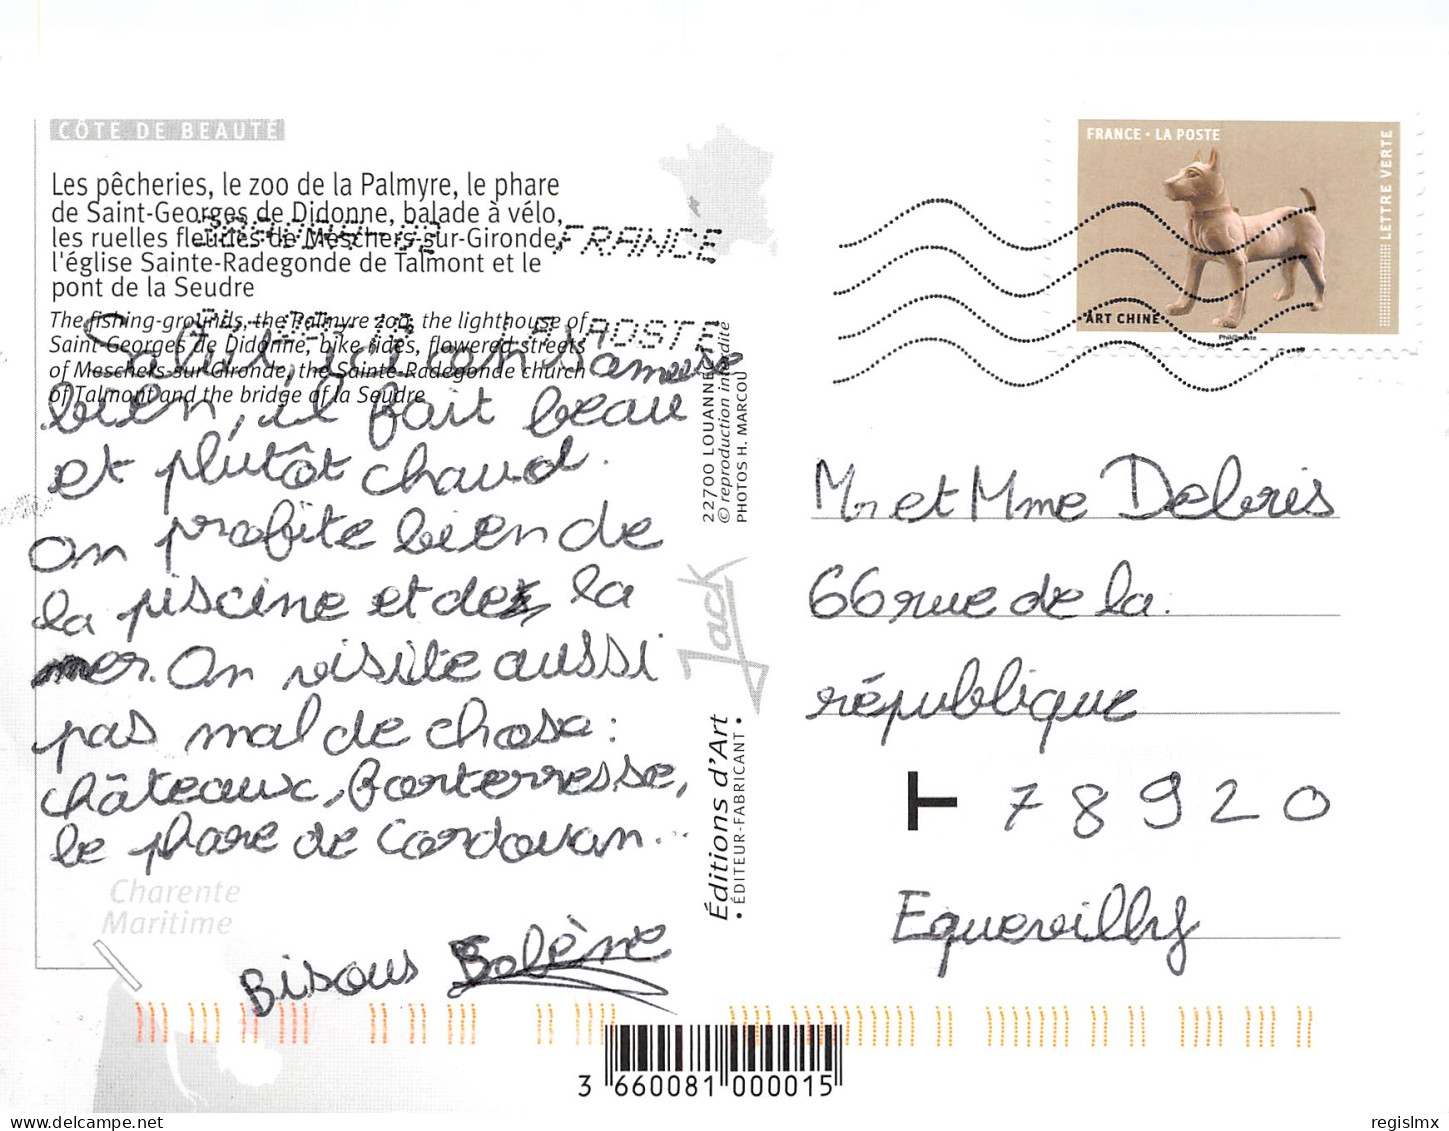 CÔTE DE BEAUTÉ
Les pêcheries, le zoo de la Palmyre, le phare
de Saint-Georges de Didonne, balade à vélo,
les ruelles fleuries de Meschers-sur-Gironde,
l'église Sainte-Radegonde de Talmont et le
pont de la Seudre
The fishing-grounds, the Palmyre zoo, the lighthouse of
Saint-Georges de Didonne, bike rides, flowered streets
of Meschers-sur-Gironde, the Sainte-Radegonde church
of Talmont and the bridge of la Seudre
FRANCE
LA POSTE
Salut, ici on s'amuse
bien, il fait beau
et plutôt chaud.
On profite bien de
la piscine et de la
mer. On visite aussi
pas mal de chose :
châteaux, forterresse,
le phare de Cordouan...
Bisous Solène
Charente
Maritime
22700 LOUANNEC
© reproduction interdite
PHOTOS H. MARCOU
Jack
Éditions d'Art
• ÉDITEUR-FABRICANT •
FRANCE • LA POSTE
LETTRE VERTE
ART CHINE
Phil@poste
Mr et Mme Debris
66 rue de la
république
T 78920
Equevilly
3 660081 000015
delcampe.net
regislmx